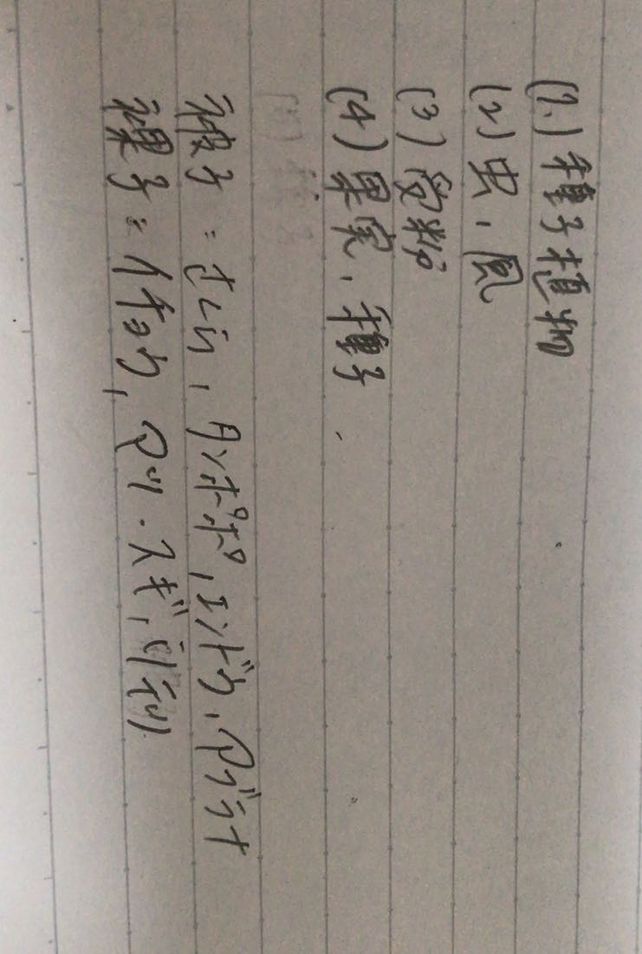 (1.) 種子植物
(2) 虫、風
(3) 受粉
(4) 果実、種子
被子=さくら、タンポポ、エンドウ、アブラナ
裸子=イチョウ、マツ・スギ、ソテツ